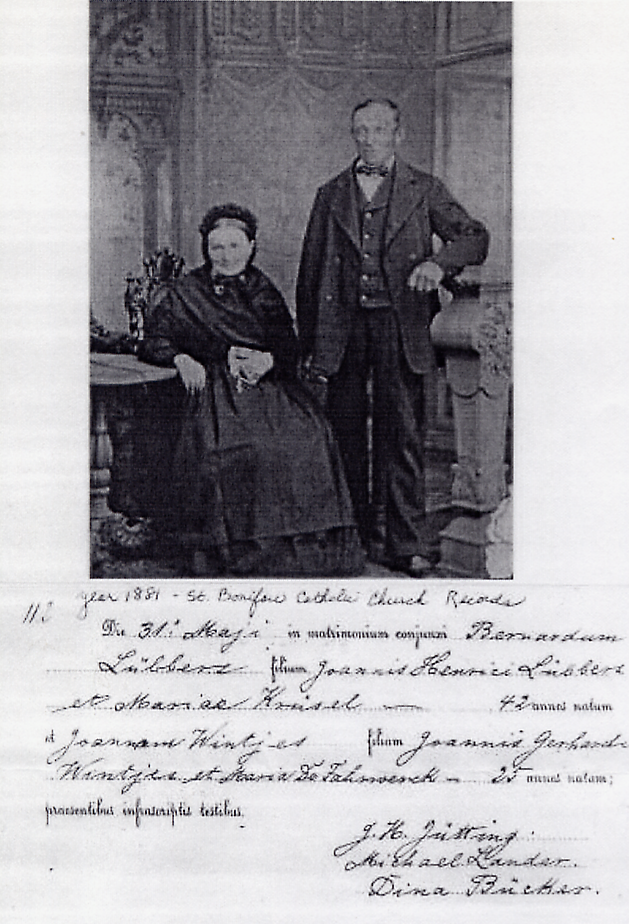 year 1881 - St. Boniface Catholic Church Records
112
Die 31i Maji in matrimonium conjunxi Bernardum
Lübbers filium Joannis Henrici Lübbers
et Mariae Krüsel — 42 annos natum
et Joannam Wintjes filiam Joannis Gerhardi
Wintjes et Maria Da Fahrwerck - 25 annos natam;
praesentibus infrascriptis testibus.
J. H. Jütting.
Michael Lander.
Dina Bücker.